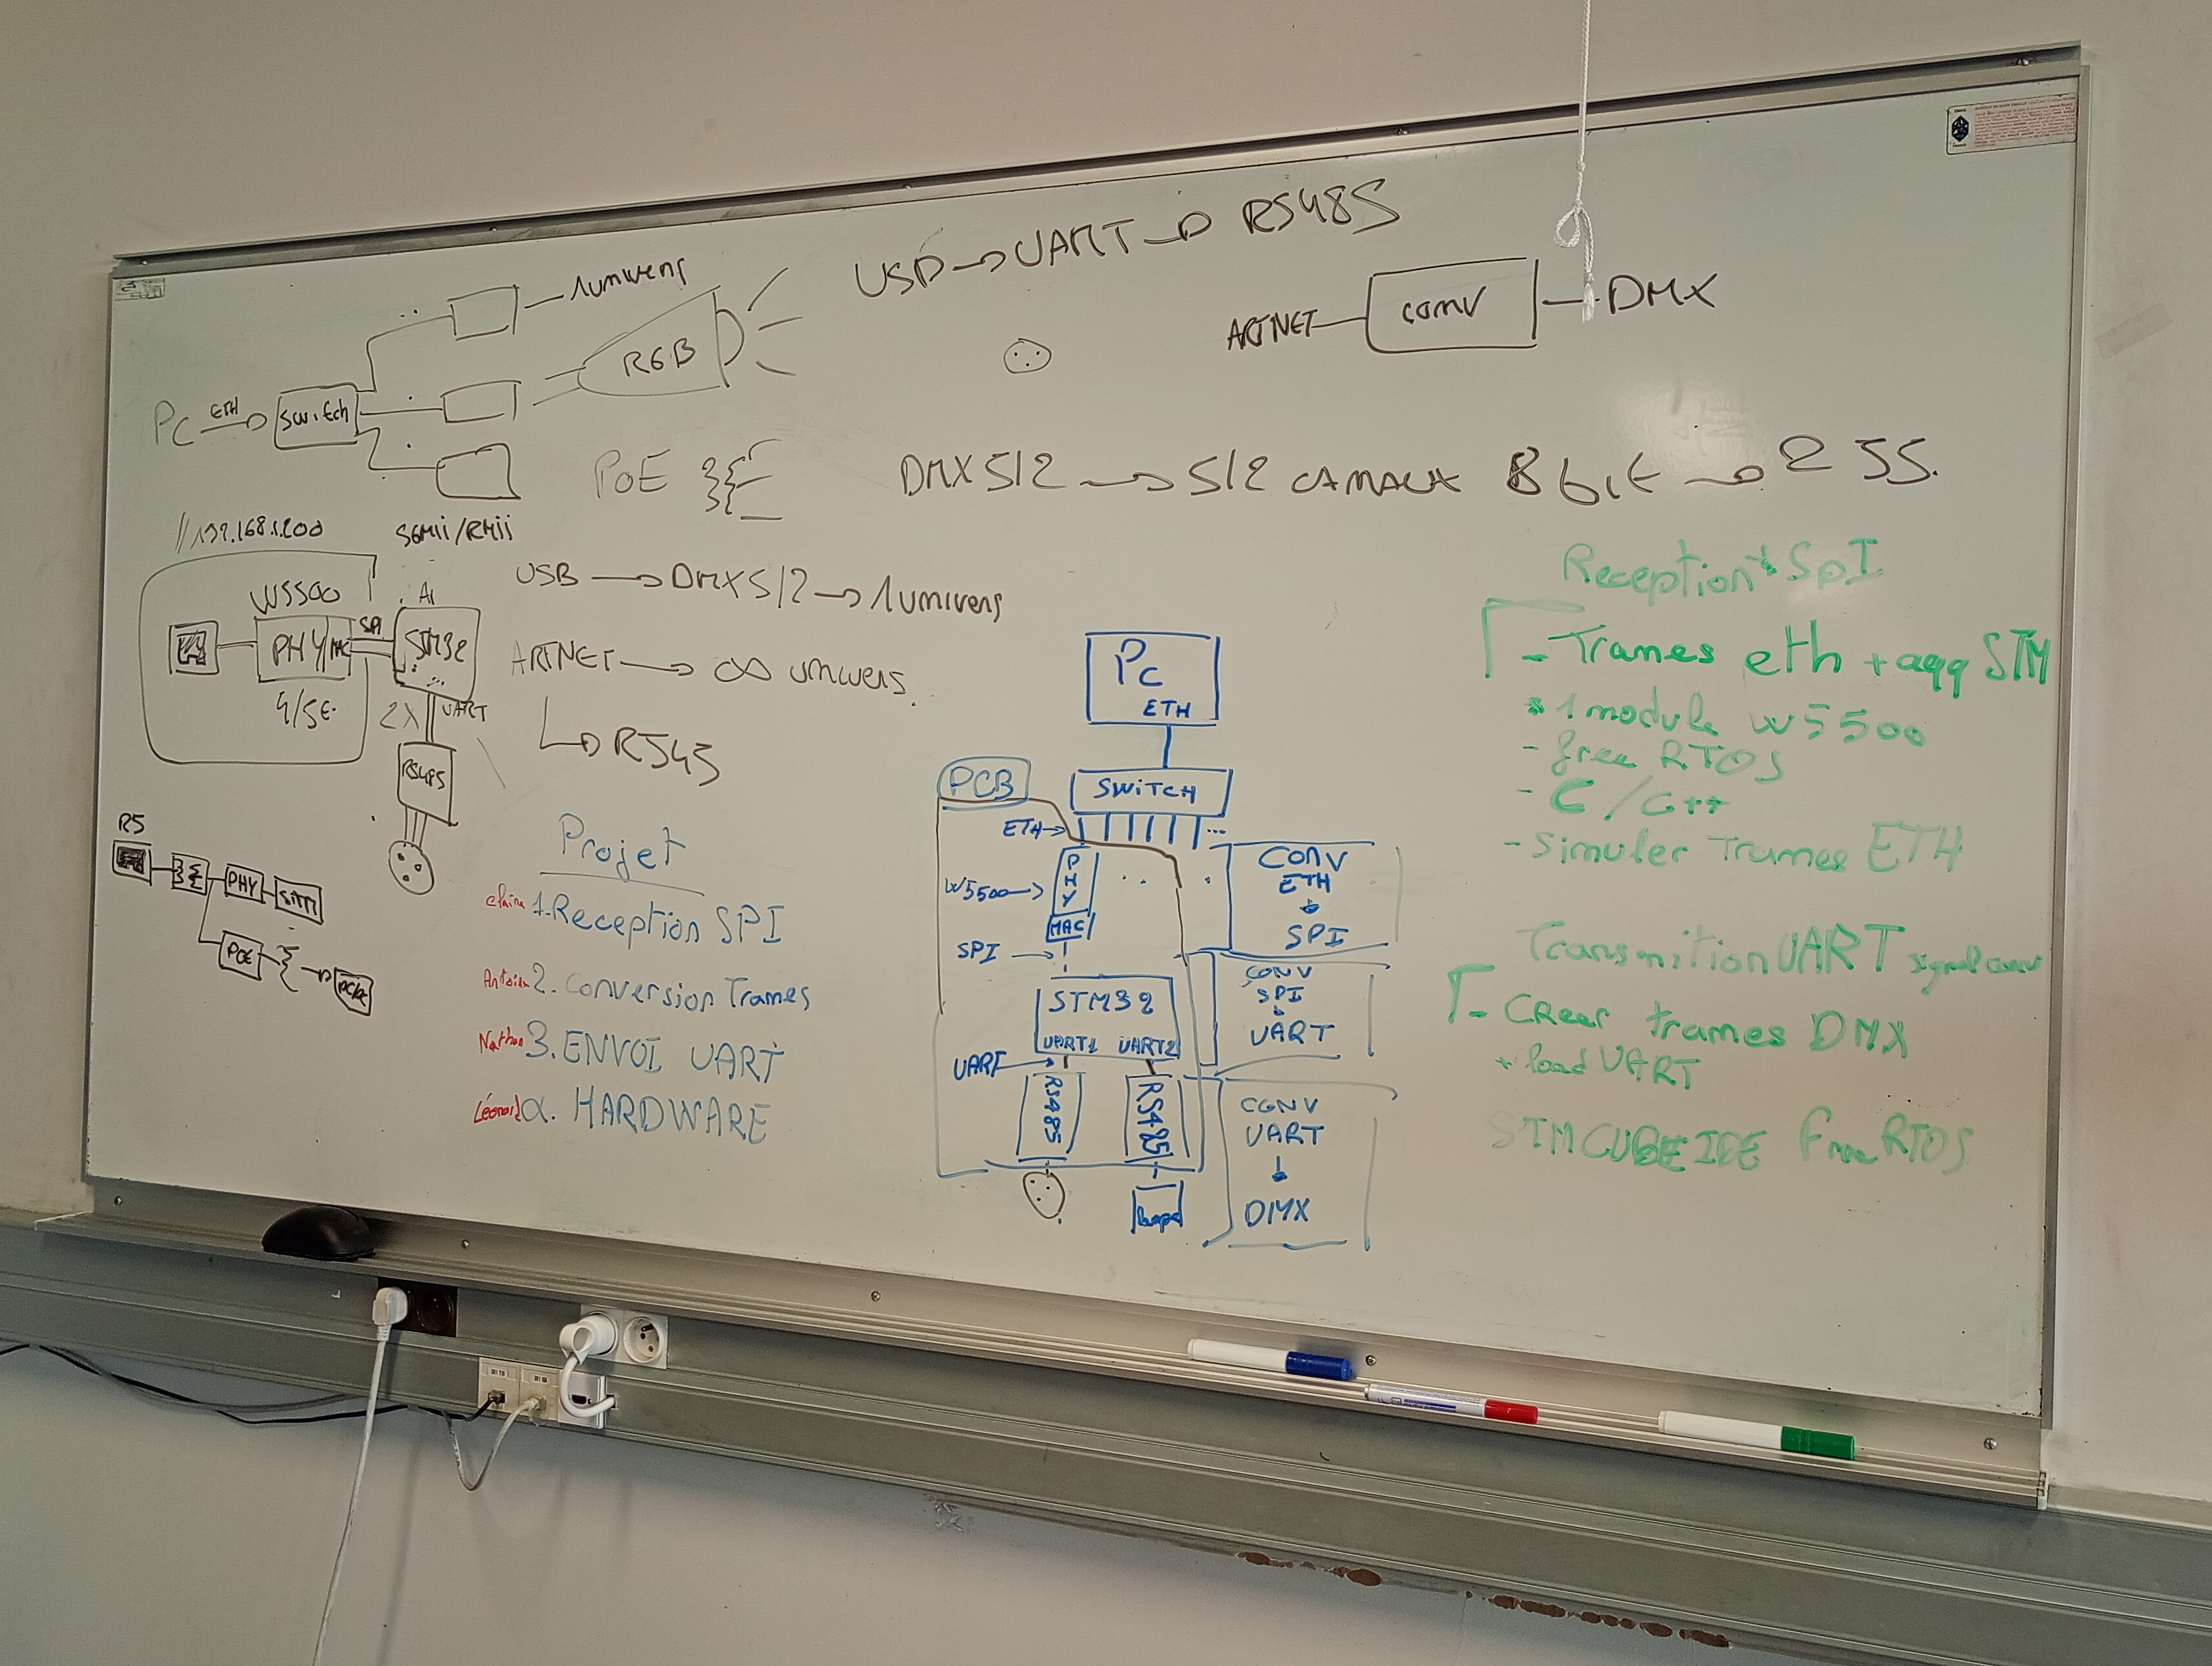 USB → UART → RS485
ARTNET — conv — DMX
1 univers
RGB
PC ETH → switch
PoE
DMX512 → 512 CANAUX 8 bit → 255.
//192.168.1.200
SGMii/RMii
W5500
PHY MAC
SPI
STM32
2X UART
RS485
USB → DMX512 → 1 univers
ARTNET → ∞ univers.
↳ RS43
PHY
POE
DC/DC
Projet
1. Reception SPI
Antoine 2. Conversion Trames
Nathan 3. ENVOI UART
α. HARDWARE
PC
ETH
PCB
SWITCH
ETH→
...
W5500→
PHY
MAC
SPI →
STM32
UART1 UART2
UART →
RS485
RS485
CONV
ETH
↓
SPI
CONV
SPI
↓
UART
CONV
UART
↓
DMX
Reception SpI
- Trames eth + aqq STM
* 1 module W5500
- free RTOS
- C / C++
- Simuler Trames ETH
Transmition UART signal conv
- CReer trames DMX
+ load UART
STMCUBEIDE Free RTOS